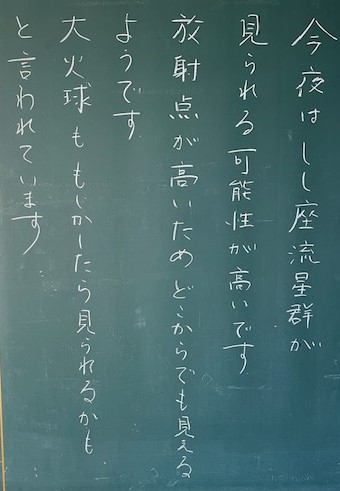 今夜はしし座流星群が
見られる可能性が高いです
放射点が高いためどこからでも見える
ようです
大火球ももしかしたら見られるかも
と言われています